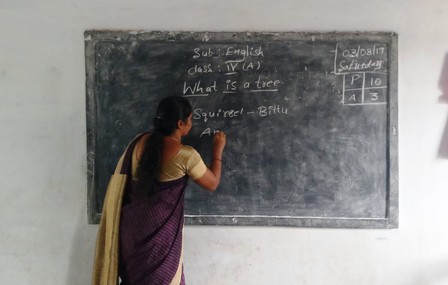 Sub : English
Class : IV (A)
What is a tree
Squirrel - Bittu
An
03/08/17
Saturday
P 10
A 3